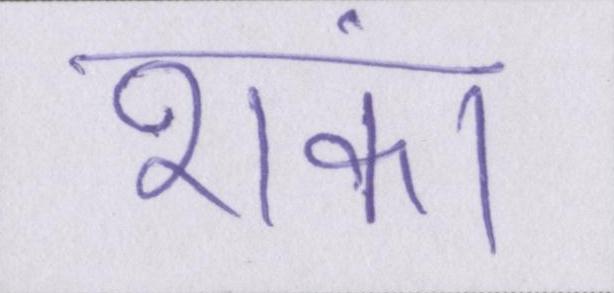 शकां